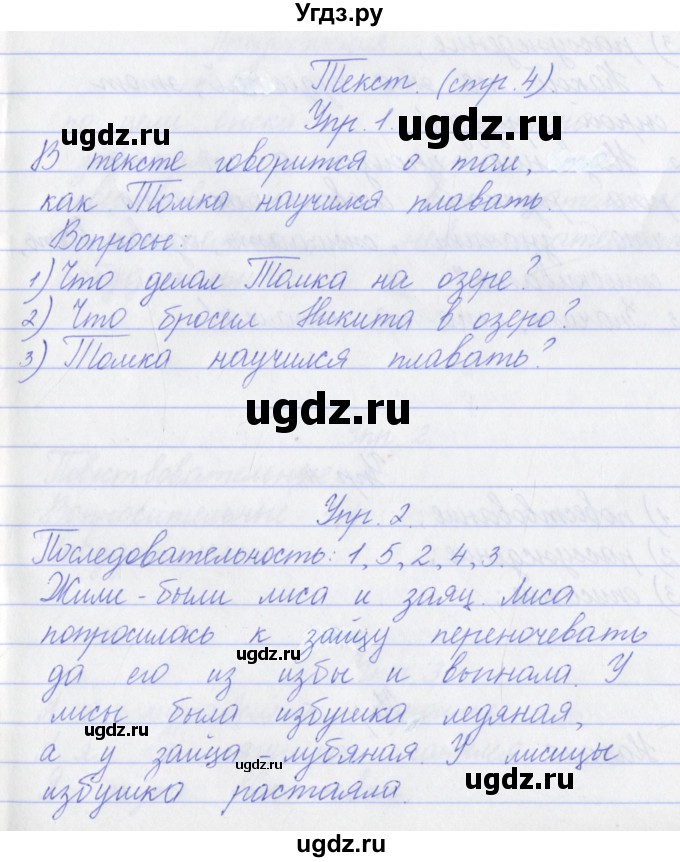 Угдз.ру
Текст (стр. 4)
Упр. 1.
ugdz.ru
ugdz.ru
В тексте говорится о том,
как Томка научился плавать.
Вопросы:
ugdz.ru
1) Что делал Томка на озере?
2) Что бросил Никита в озеро?
3) Томка научился плавать?
ugdz.ru
Упр. 2.
Последовательность: 1, 5, 2, 4, 3.
Жили-были лиса и заяц. Лиса
попросилась к зайцу переночевать
ugdz.ru
да его из избы и выгнала. У
лисы была избушка ледяная,
ugdz.ru
а у зайца - лубяная У лисицы
ugdz.ru
ugdz.ru
избушка растаяла.
ugdz.ru